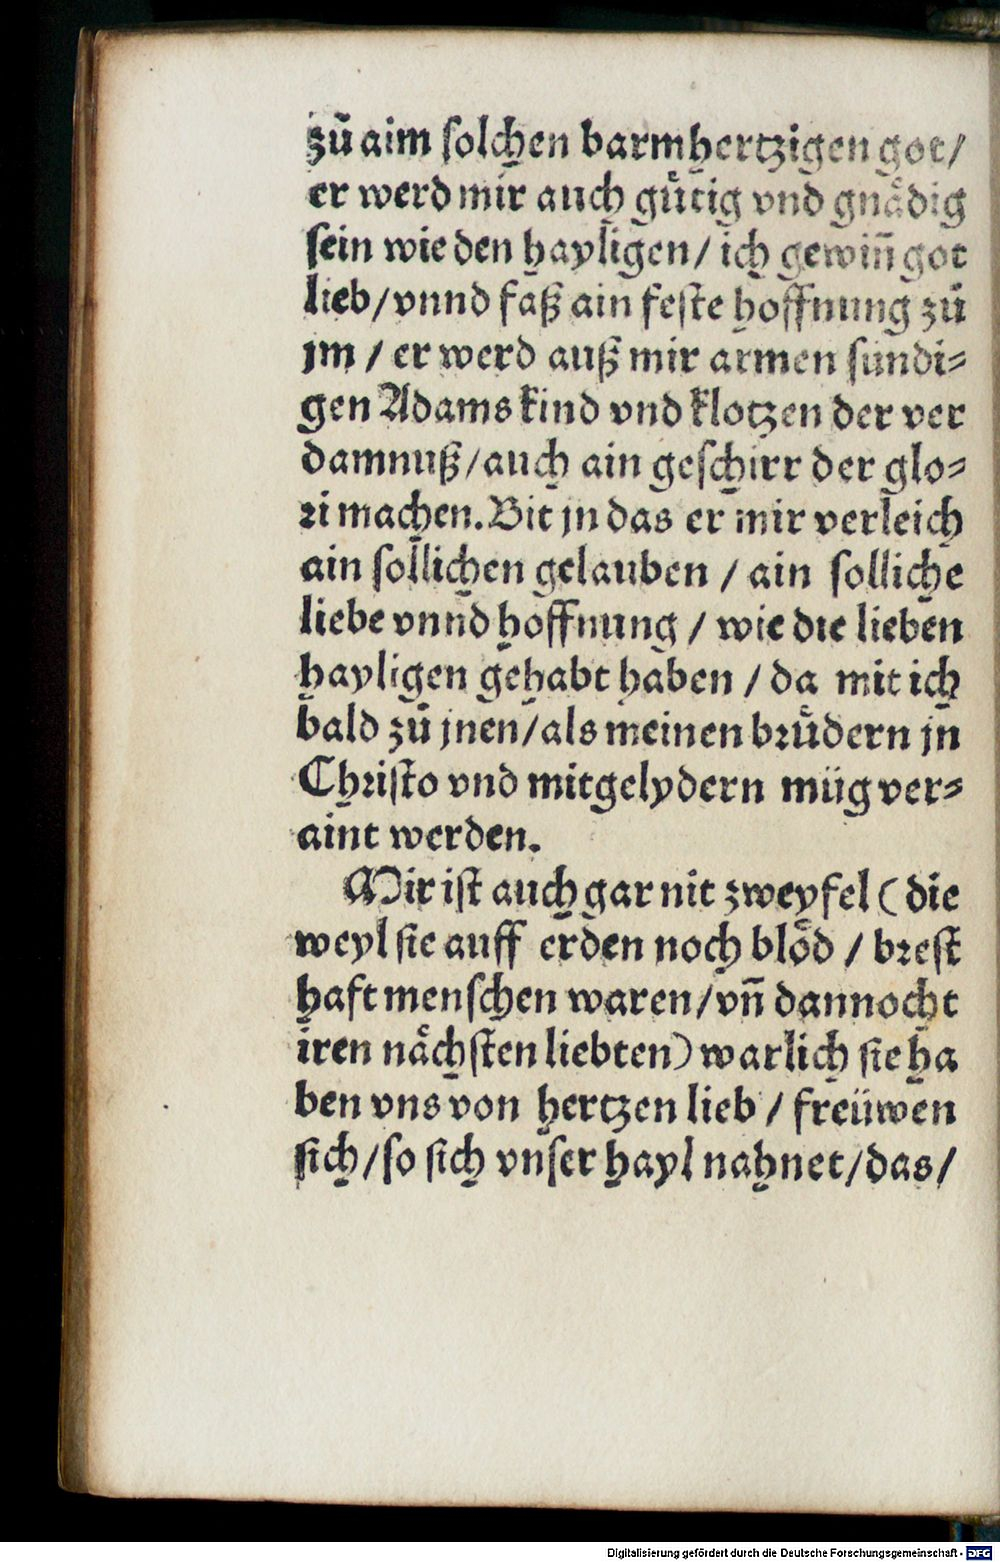 zů aim ſolchen barmhertzigen got/
er werd mir auch gütig vnd gnaͤdig
ſein wie den hayligen/ ich gewiñ got
lieb/ vnnd faß ain feſte hoffnung zů
jm / er werd auß mir armen ſündi⸗
gen Adams kind vnd klotzen der ver
damnuß/ auch ain geſchirr der glo⸗
ri machen. Bit jn das er mir verleich
ain ſollichen gelauben / ain ſolliche
liebe vnnd hoffnung / wie die lieben
hayligen gehabt haben / da mit ich
bald zů jnen/ als meinen bruͤdern jn
Chriſto vnd mitgelydern müg ver⸗
aint werden.
Mir iſt auch gar nit zweyfel (die
weyl ſie auff erden noch bloͤd / breſt
haft menſchen waren/ vñ dannocht
iren naͤchſten liebten) warlich ſie ha
ben vns von hertzen lieb / freüwen
ſich/ ſo ſich vnſer hayl nahnet/ das/
Digitalisierung gefördert durch die Deutsche Forschungsgemeinschaft - DFG